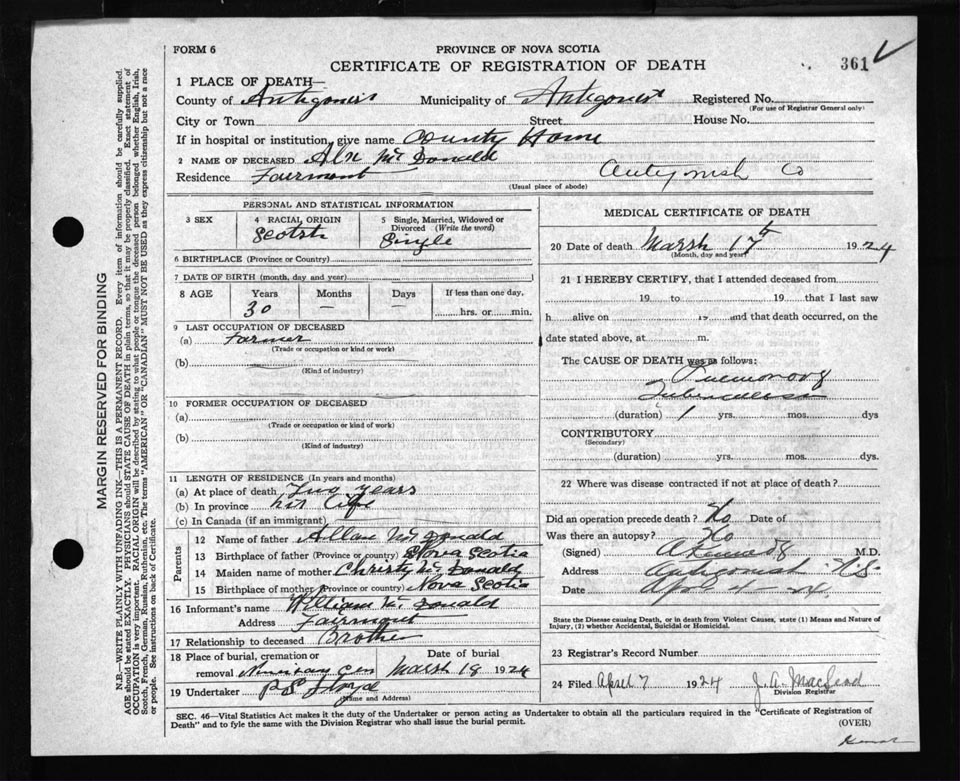 FORM 6
PROVINCE OF NOVA SCOTIA
CERTIFICATE OF REGISTRATION OF DEATH
361
1 PLACE OF DEATH—
County of Antigonish Municipality of Antigonish Registered No.
(For use of Registrar General only)
City or Town Street House No.
If in hospital or institution, give name County Home
2 NAME OF DECEASED Alx McDonald
Residence Fairmont Antigonish Co
(Usual place of abode)
PERSONAL AND STATISTICAL INFORMATION
3 SEX
4 RACIAL ORIGIN
Scotch
5 Single, Married, Widowed or Divorced (Write the word)
Single
6 BIRTHPLACE (Province or Country)
7 DATE OF BIRTH (month, day and year)
8 AGE Years Months Days If less than one day,
30 — — hrs. or min.
9 LAST OCCUPATION OF DECEASED
(a) Farmer
(Trade or occupation or kind or work)
(b)
(Kind of industry)
10 FORMER OCCUPATION OF DECEASED
(a)
(Trade or occupation or kind of work)
(b)
(Kind of industry)
11 LENGTH OF RESIDENCE (In years and months)
(a) At place of death Two years
(b) In province his life
(c) In Canada (if an immigrant)
Parents
12 Name of father Allan McDonald
13 Birthplace of father (Province or country) Nova Scotia
14 Maiden name of mother Christy McDonald
15 Birthplace of mother (Province or country) Nova Scotia
16 Informant's name William McDonald
Address Fairmont
17 Relationship to deceased Brother
18 Place of burial, cremation or removal Date of burial
Marsh 18 1924
19 Undertaker
(Name and Address)
MEDICAL CERTIFICATE OF DEATH
20 Date of death Marsh 17th 1924
(Month, day and year)
21 I HEREBY CERTIFY, that I attended deceased from
19 to 19 that I last saw
h alive on 19 and that death occurred, on the
date stated above, at m.
The CAUSE OF DEATH was as follows:
Pulmonary
Tuberculosis
(duration) 1 yrs. mos. dys
CONTRIBUTORY
(Secondary)
(duration) yrs. mos. dys.
22 Where was disease contracted if not at place of death?
Did an operation precede death? No Date of
Was there an autopsy? No
(Signed) M.D.
Address Antigonish N.S.
Date Ap 4 - 24
State the Disease causing Death, or in death from Violent Causes, state (1) Means and Nature of
Injury, (2) whether Accidental, Suicidal or Homicidal.
23 Registrar's Record Number
24 Filed April 7 1924 J. A. MacLeod
Division Registrar
SEC. 46—Vital Statistics Act makes it the duty of the Undertaker or person acting as Undertaker to obtain all the particulars required in the "Certificate of Registration of
Death" and to fyle the same with the Division Registrar who shall issue the burial permit.
(OVER)
MARGIN RESERVED FOR BINDING
N.B.—WRITE PLAINLY WITH UNFADING INK—THIS IS A PERMANENT RECORD. Every item of information should be carefully supplied.
AGE should be stated EXACTLY. PHYSICIANS should STATE CAUSE OF DEATH in plain terms, so that it may be properly classified. Exact statement of
OCCUPATION is very important. RACIAL ORIGIN will be described by stating to what people or tongue the deceased person belonged whether English, Irish,
Scotch, French, German, Russian, Ruthenian, etc. The terms "AMERICAN" OR "CANADIAN" MUST NOT BE USED as they express citizenship but not a race
or people. See instructions on back of Certificate.